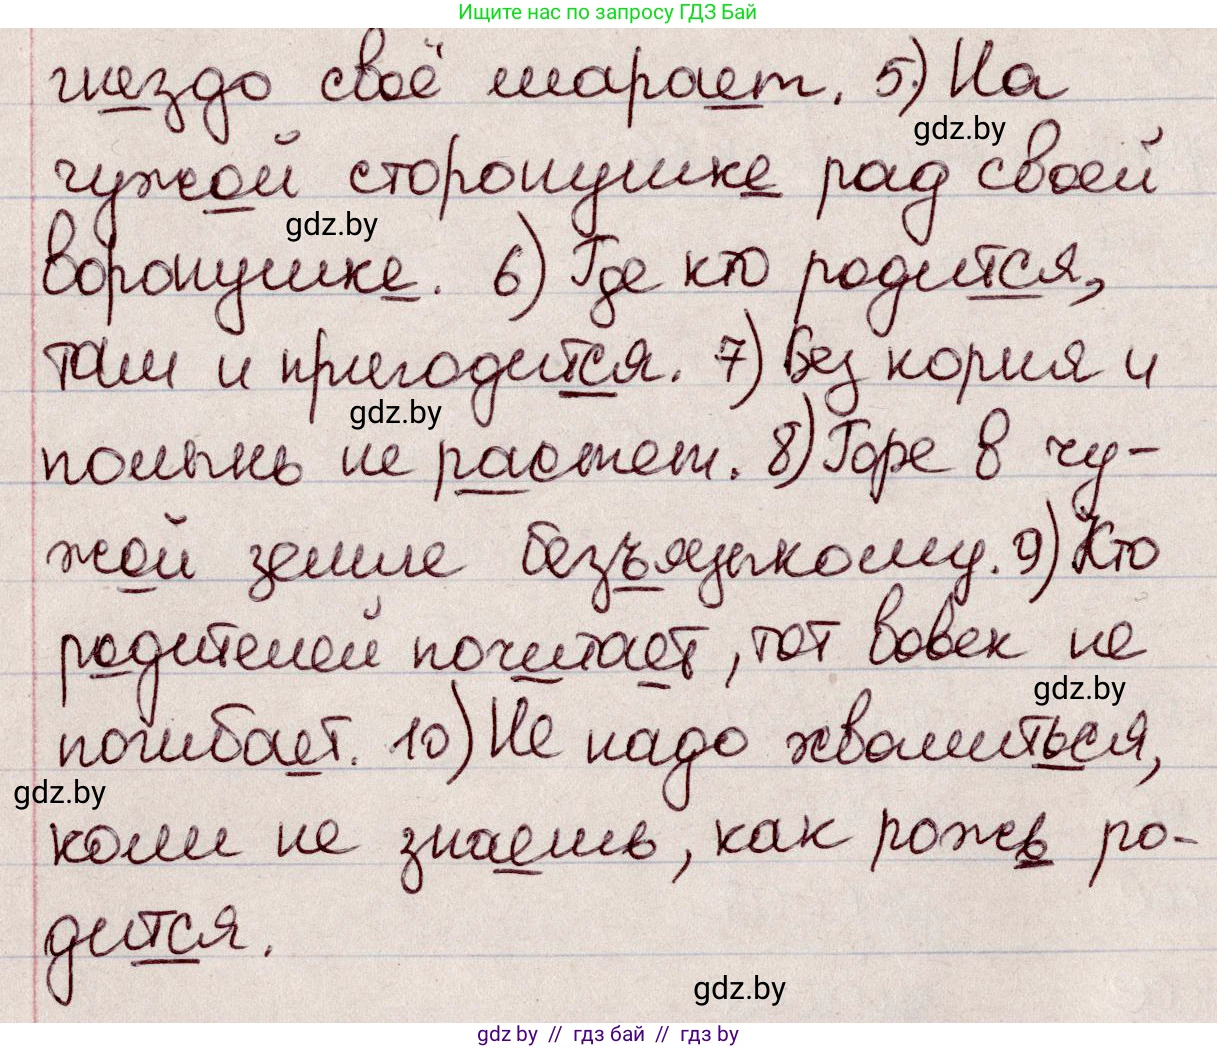 Ищите нас по запросу ГДЗ Бай
гнездо своё марает. 5) На
gdz.by
чужой сторонушке рад своей
gdz.by
воронушке. 6) Где кто родится,
там и пригодится. 7) Без корня и
gdz.by
полынь не растет. 8) Горе в чу-
жой земле безъязыкому. 9) Кто
родителей почитает, тот вовек не
gdz.by
погибает. 10) Не надо хвалиться,
gdz.by
коли не знаешь, как рожь ро-
дится.
gdz.by
gdz by // гдз бай // гдз by